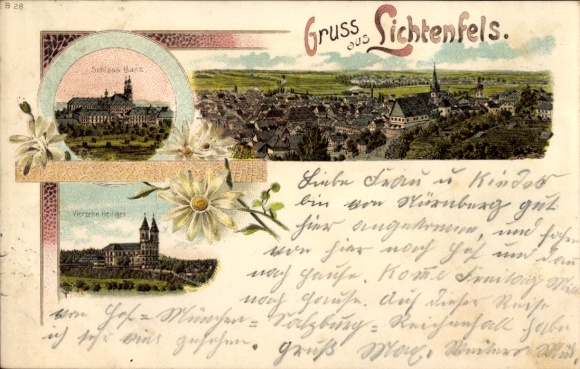 B 28
Gruss aus Lichtenfels.
Schloss Banz
Vierzehn Heiligen
Liebe Frau u Kinder
bin von Nürnberg gut
hier angekommen, und fahre
von hier nach Hof und dann
nach hause. Kome Freitag
nach hause. Auf dieser Reise
von Hof = München = Salzburg = Reichenhall habe
ich sehr viel gesehen. Gruß Max.